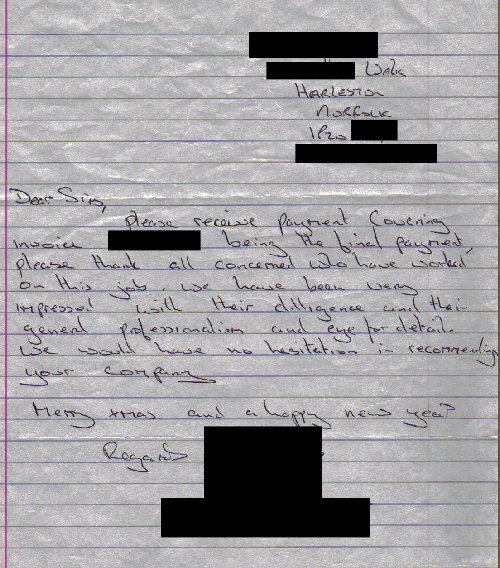 Walk
HARLESTON
NORFOLK
IP20
Dear Sirs,
please receive payment Covering
invoice being the final payment,
please thank all concerned who have worked
on this job. we have been very
impressed with their dilligence and their
general professionalism and eye for detail.
we would have no hesitation in recommending
your company
Merry xmas and a happy new year
Regards